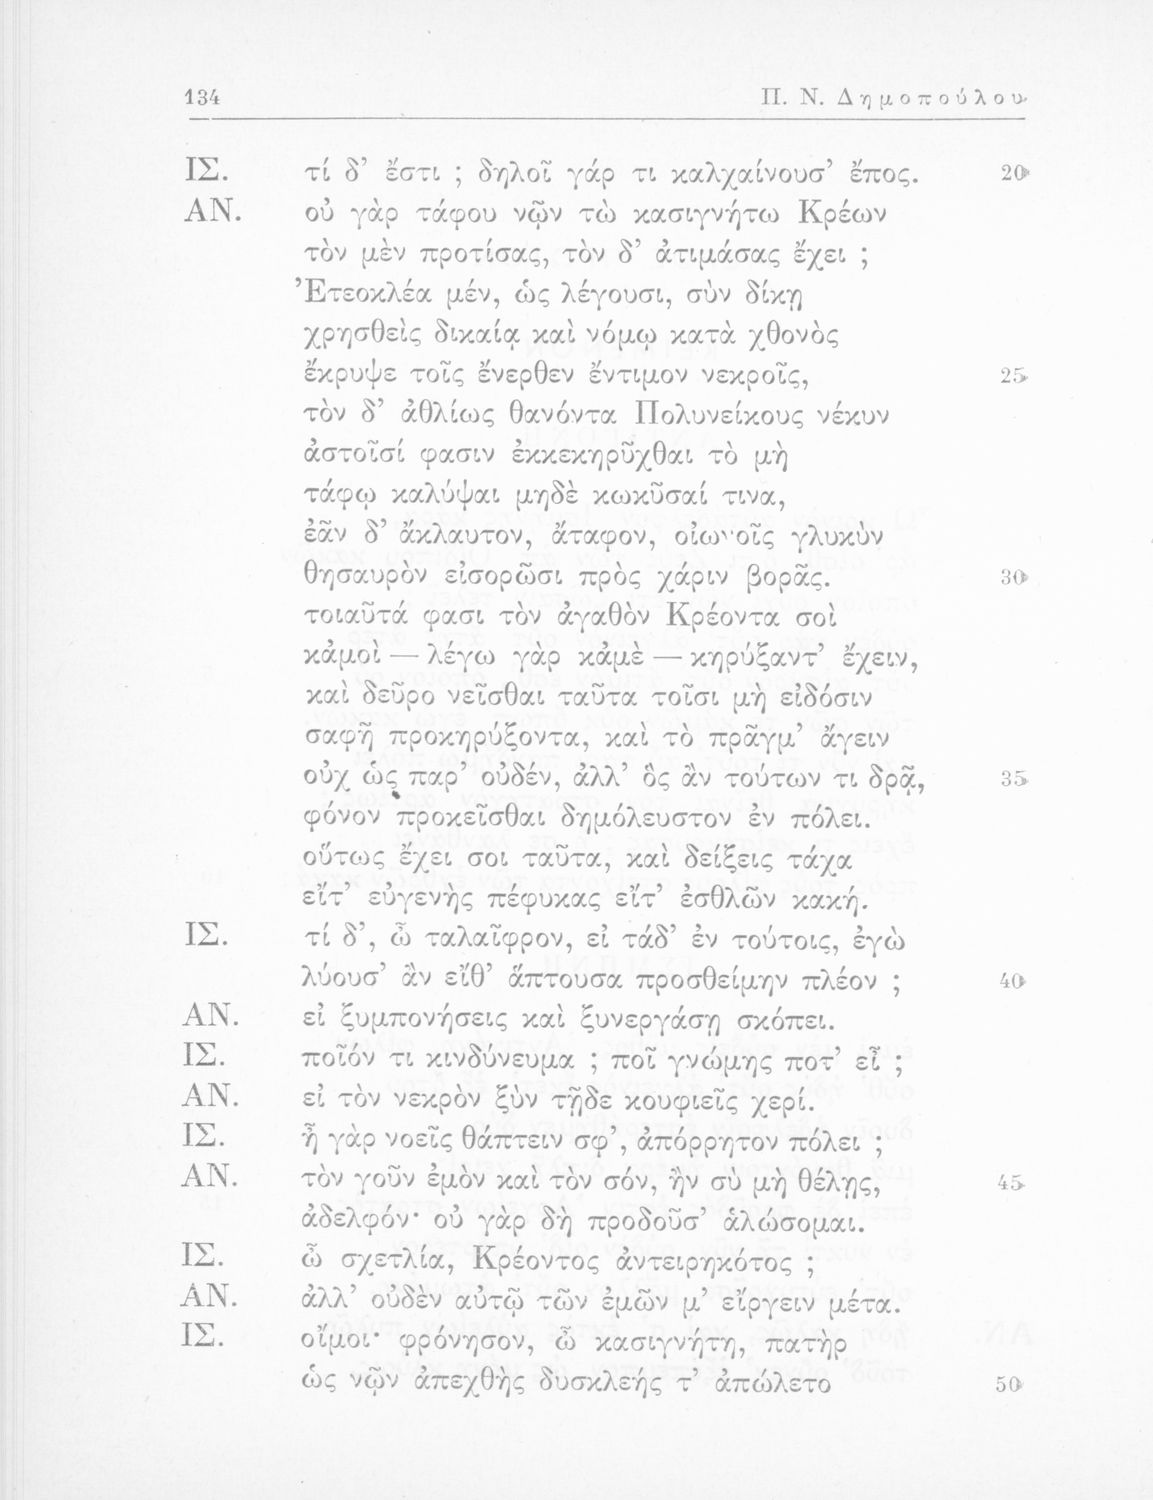 134 Π. Ν. Δημοπούλου
ΙΣ. τί δ’ ἔστι ; δηλοῖ γάρ τι καλχαίνουσ’ ἔπος. 20
ΑΝ. οὐ γὰρ τάφου νῷν τὼ κασιγνήτω Κρέων
τὸν μὲν προτίσας, τὸν δ’ ἀτιμάσας ἔχει ;
Ἐτεοκλέα μέν, ὡς λέγουσι, σὺν δίκῃ
χρησθεὶς δικαίᾳ καὶ νόμῳ κατὰ χθονὸς
ἔκρυψε τοῖς ἔνερθεν ἔντιμον νεκροῖς, 25
τὸν δ’ ἀθλίως θανόντα Πολυνείκους νέκυν
ἀστοῖσί φασιν ἐκκεκηρῦχθαι τὸ μὴ
τάφῳ καλύψαι μηδὲ κωκῦσαί τινα,
ἐᾶν δ’ ἄκλαυτον, ἄταφον, οἰωνοῖς γλυκὺν
θησαυρὸν εἰσορῶσι πρὸς χάριν βορᾶς. 30
τοιαῦτά φασι τὸν ἀγαθὸν Κρέοντα σοὶ
κἀμοὶ — λέγω γὰρ κἀμὲ — κηρύξαντ’ ἔχειν,
καὶ δεῦρο νεῖσθαι ταῦτα τοῖσι μὴ εἰδόσιν
σαφῆ προκηρύξοντα, καὶ τὸ πρᾶγμ’ ἄγειν
οὐχ ὡς παρ’ οὐδέν, ἀλλ’ ὃς ἂν τούτων τι δρᾷ, 35
φόνον προκεῖσθαι δημόλευστον ἐν πόλει.
οὕτως ἔχει σοι ταῦτα, καὶ δείξεις τάχα
εἴτ’ εὐγενὴς πέφυκας εἴτ’ ἐσθλῶν κακή.
ΙΣ. τί δ’, ὦ ταλαῖφρον, εἰ τάδ’ ἐν τούτοις, ἐγὼ
λύουσ’ ἂν εἴθ’ ἅπτουσα προσθείμην πλέον ; 40
ΑΝ. εἰ ξυμπονήσεις καὶ ξυνεργάσῃ σκόπει.
ΙΣ. ποῖόν τι κινδύνευμα ; ποῖ γνώμης ποτ’ εἶ ;
ΑΝ. εἰ τὸν νεκρὸν ξὺν τῇδε κουφιεῖς χερί.
ΙΣ. ἦ γὰρ νοεῖς θάπτειν σφ’, ἀπόρρητον πόλει ;
ΑΝ. τὸν γοῦν ἐμὸν καὶ τὸν σόν, ἢν σὺ μὴ θέλῃς, 45
ἀδελφόν· οὐ γὰρ δὴ προδοῦσ’ ἁλώσομαι.
ΙΣ. ὦ σχετλία, Κρέοντος ἀντειρηκότος ;
ΑΝ. ἀλλ’ οὐδὲν αὐτῷ τῶν ἐμῶν μ’ εἴργειν μέτα.
ΙΣ. οἴμοι· φρόνησον, ὦ κασιγνήτη, πατὴρ
ὡς νῷν ἀπεχθὴς δυσκλεής τ’ ἀπώλετο 50